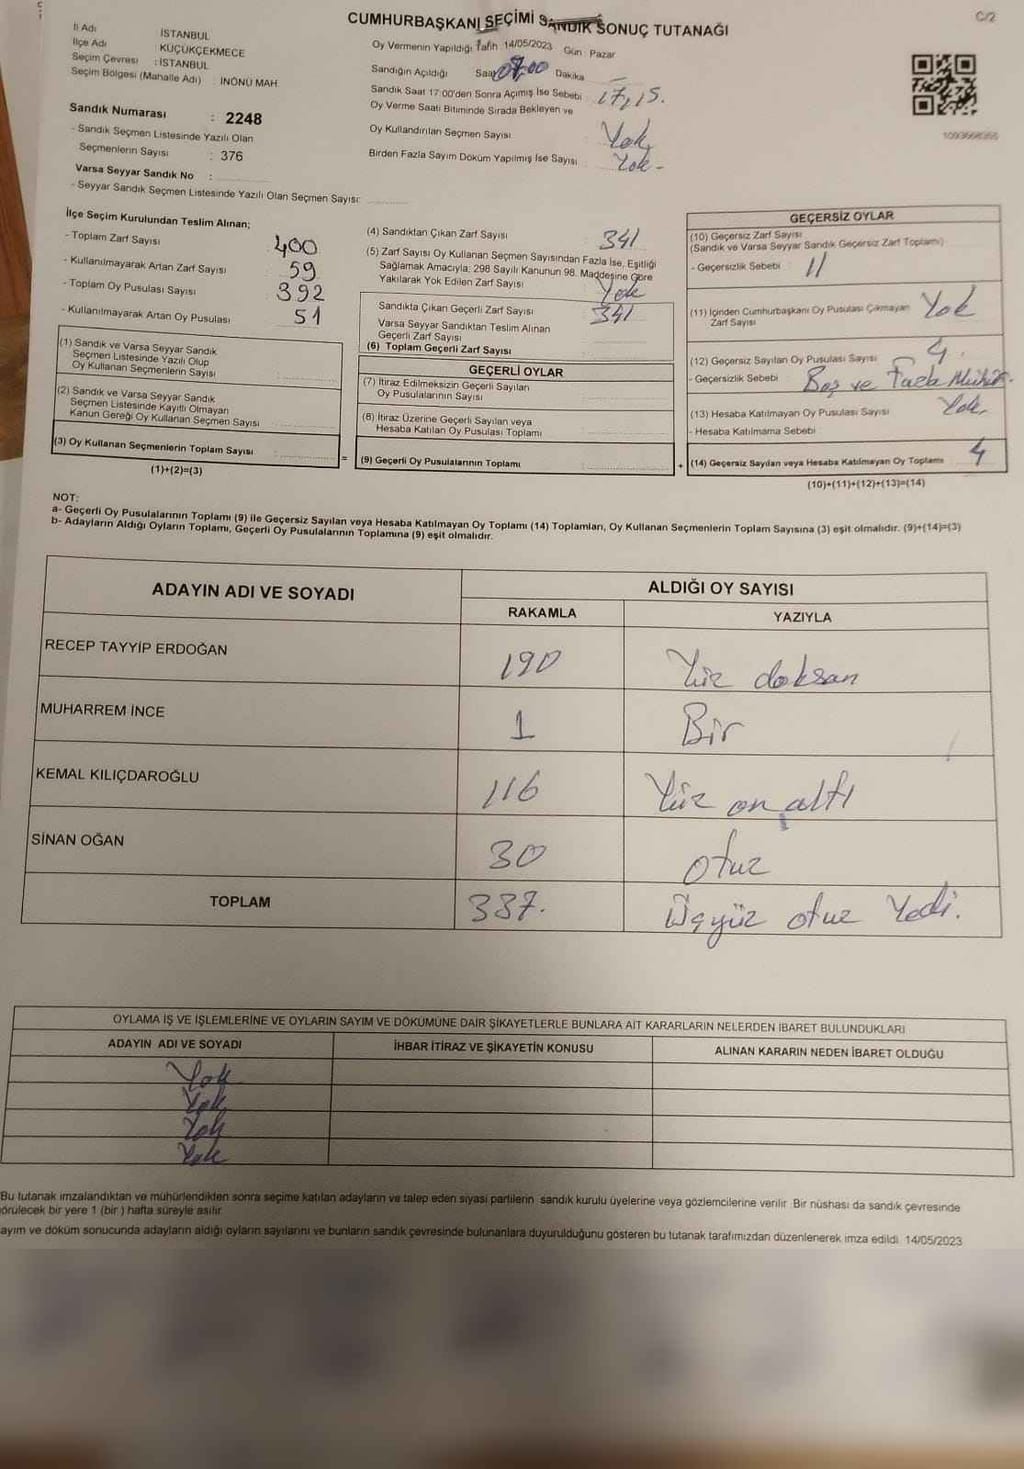 C/2
CUMHURBAŞKANI SEÇİMİ SANDIK SONUÇ TUTANAĞI
İli Adı : İSTANBUL
İlçe Adı : KÜÇÜKÇEKMECE
Seçim Çevresi : İSTANBUL
Seçim Bölgesi (Mahalle Adı) : İNÖNÜ MAH
Sandık Numarası : 2248
- Sandık Seçmen Listesinde Yazılı Olan
Seçmenlerin Sayısı : 376
Varsa Seyyar Sandık No :
- Seyyar Sandık Seçmen Listesinde Yazılı Olan Seçmen Sayısı:
Oy Vermenin Yapıldığı Tarih 14/05/2023 Gün : Pazar
Sandığın Açıldığı Saat Dakika
Sandık Saat 17:00'den Sonra Açımış İse Sebebi 17,15.
Oy Verme Saati Bitiminde Sırada Bekleyen ve
Oy Kullandırılan Seçmen Sayısı Yok
Birden Fazla Sayım Döküm Yapılmış İse Sayısı Yok -
1093668355
İlçe Seçim Kurulundan Teslim Alınan;
- Toplam Zarf Sayısı 400
- Kullanılmayarak Artan Zarf Sayısı 59
- Toplam Oy Pusulası Sayısı 392
- Kullanılmayarak Artan Oy Pusulası 51
(1) Sandık ve Varsa Seyyar Sandık
Seçmen Listesinde Yazılı Olup
Oy Kullanan Seçmenlerin Sayısı
(2) Sandık ve Varsa Seyyar Sandık
Seçmen Listesinde Kayıtlı Olmayan
Kanun Gereği Oy Kullanan Seçmen Sayısı
(3) Oy Kullanan Seçmenlerin Toplam Sayısı
(1)+(2)=(3)
=
(4) Sandıktan Çıkan Zarf Sayısı 341
(5) Zarf Sayısı Oy Kullanan Seçmen Sayısından Fazla İse, Eşitliği
Sağlamak Amacıyla; 298 Sayılı Kanunun 98. Maddesine Göre
Yakılarak Yok Edilen Zarf Sayısı Yok
Sandıkta Çıkan Geçerli Zarf Sayısı 341
Varsa Seyyar Sandıktan Teslim Alınan
Geçerli Zarf Sayısı
(6) Toplam Geçerli Zarf Sayısı
GEÇERLİ OYLAR
(7) İtiraz Edilmeksizin Geçerli Sayılan
Oy Pusulalarının Sayısı
(8) İtiraz Üzerine Geçerli Sayılan veya
Hesaba Katılan Oy Pusulası Toplamı
(9) Geçerli Oy Pusulalarının Toplamı
+
GEÇERSİZ OYLAR
(10) Geçersiz Zarf Sayısı
(Sandık ve Varsa Seyyar Sandık Geçersiz Zarf Toplamı)
- Geçersizlik Sebebi 11
(11) İçinden Cumhurbaşkanı Oy Pusulası Çıkmayan Yok
Zarf Sayısı
(12) Geçersiz Sayılan Oy Pusulası Sayısı 4.
- Geçersizlik Sebebi Boş ve Fazla Mühür.
(13) Hesaba Katılmayan Oy Pusulası Sayısı Yok
- Hesaba Katılmama Sebebi
(14) Geçersiz Sayılan veya Hesaba Katılmayan Oy Toplamı 4
(10)+(11)+(12)+(13)=(14)
NOT:
a- Geçerli Oy Pusulalarının Toplamı (9) ile Geçersiz Sayılan veya Hesaba Katılmayan Oy Toplamı (14) Toplamları, Oy Kullanan Seçmenlerin Toplam Sayısına (3) eşit olmalıdır. (9)+(14)=(3)
b- Adayların Aldığı Oyların Toplamı, Geçerli Oy Pusulalarının Toplamına (9) eşit olmalıdır.
ADAYIN ADI VE SOYADI ALDIĞI OY SAYISI
RAKAMLA YAZIYLA
RECEP TAYYİP ERDOĞAN 190 Yüz doksan
MUHARREM İNCE 1 Bir
KEMAL KILIÇDAROĞLU 116 Yüz on altı
SİNAN OĞAN 30 otuz
TOPLAM 337. Üçyüz otuz Yedi.
OYLAMA İŞ VE İŞLEMLERİNE VE OYLARIN SAYIM VE DÖKÜMÜNE DAİR ŞİKAYETLERLE BUNLARA AİT KARARLARIN NELERDEN İBARET BULUNDUKLARI
ADAYIN ADI VE SOYADI İHBAR İTİRAZ VE ŞİKAYETİN KONUSU ALINAN KARARIN NEDEN İBARET OLDUĞU
Yok
Yok
Yok
Yok
Bu tutanak imzalandıktan ve mühürlendikten sonra seçime katılan adayların ve talep eden siyasi partilerin sandık kurulu üyelerine veya gözlemcilerine verilir. Bir nüshası da sandık çevresinde
örülecek bir yere 1 (bir ) hafta süreyle asılır
ayım ve döküm sonucunda adayların aldığı oyların sayılarını ve bunların sandık çevresinde bulunanlara duyurulduğunu gösteren bu tutanak tarafımızdan düzenlenerek imza edildi. 14/05/2023